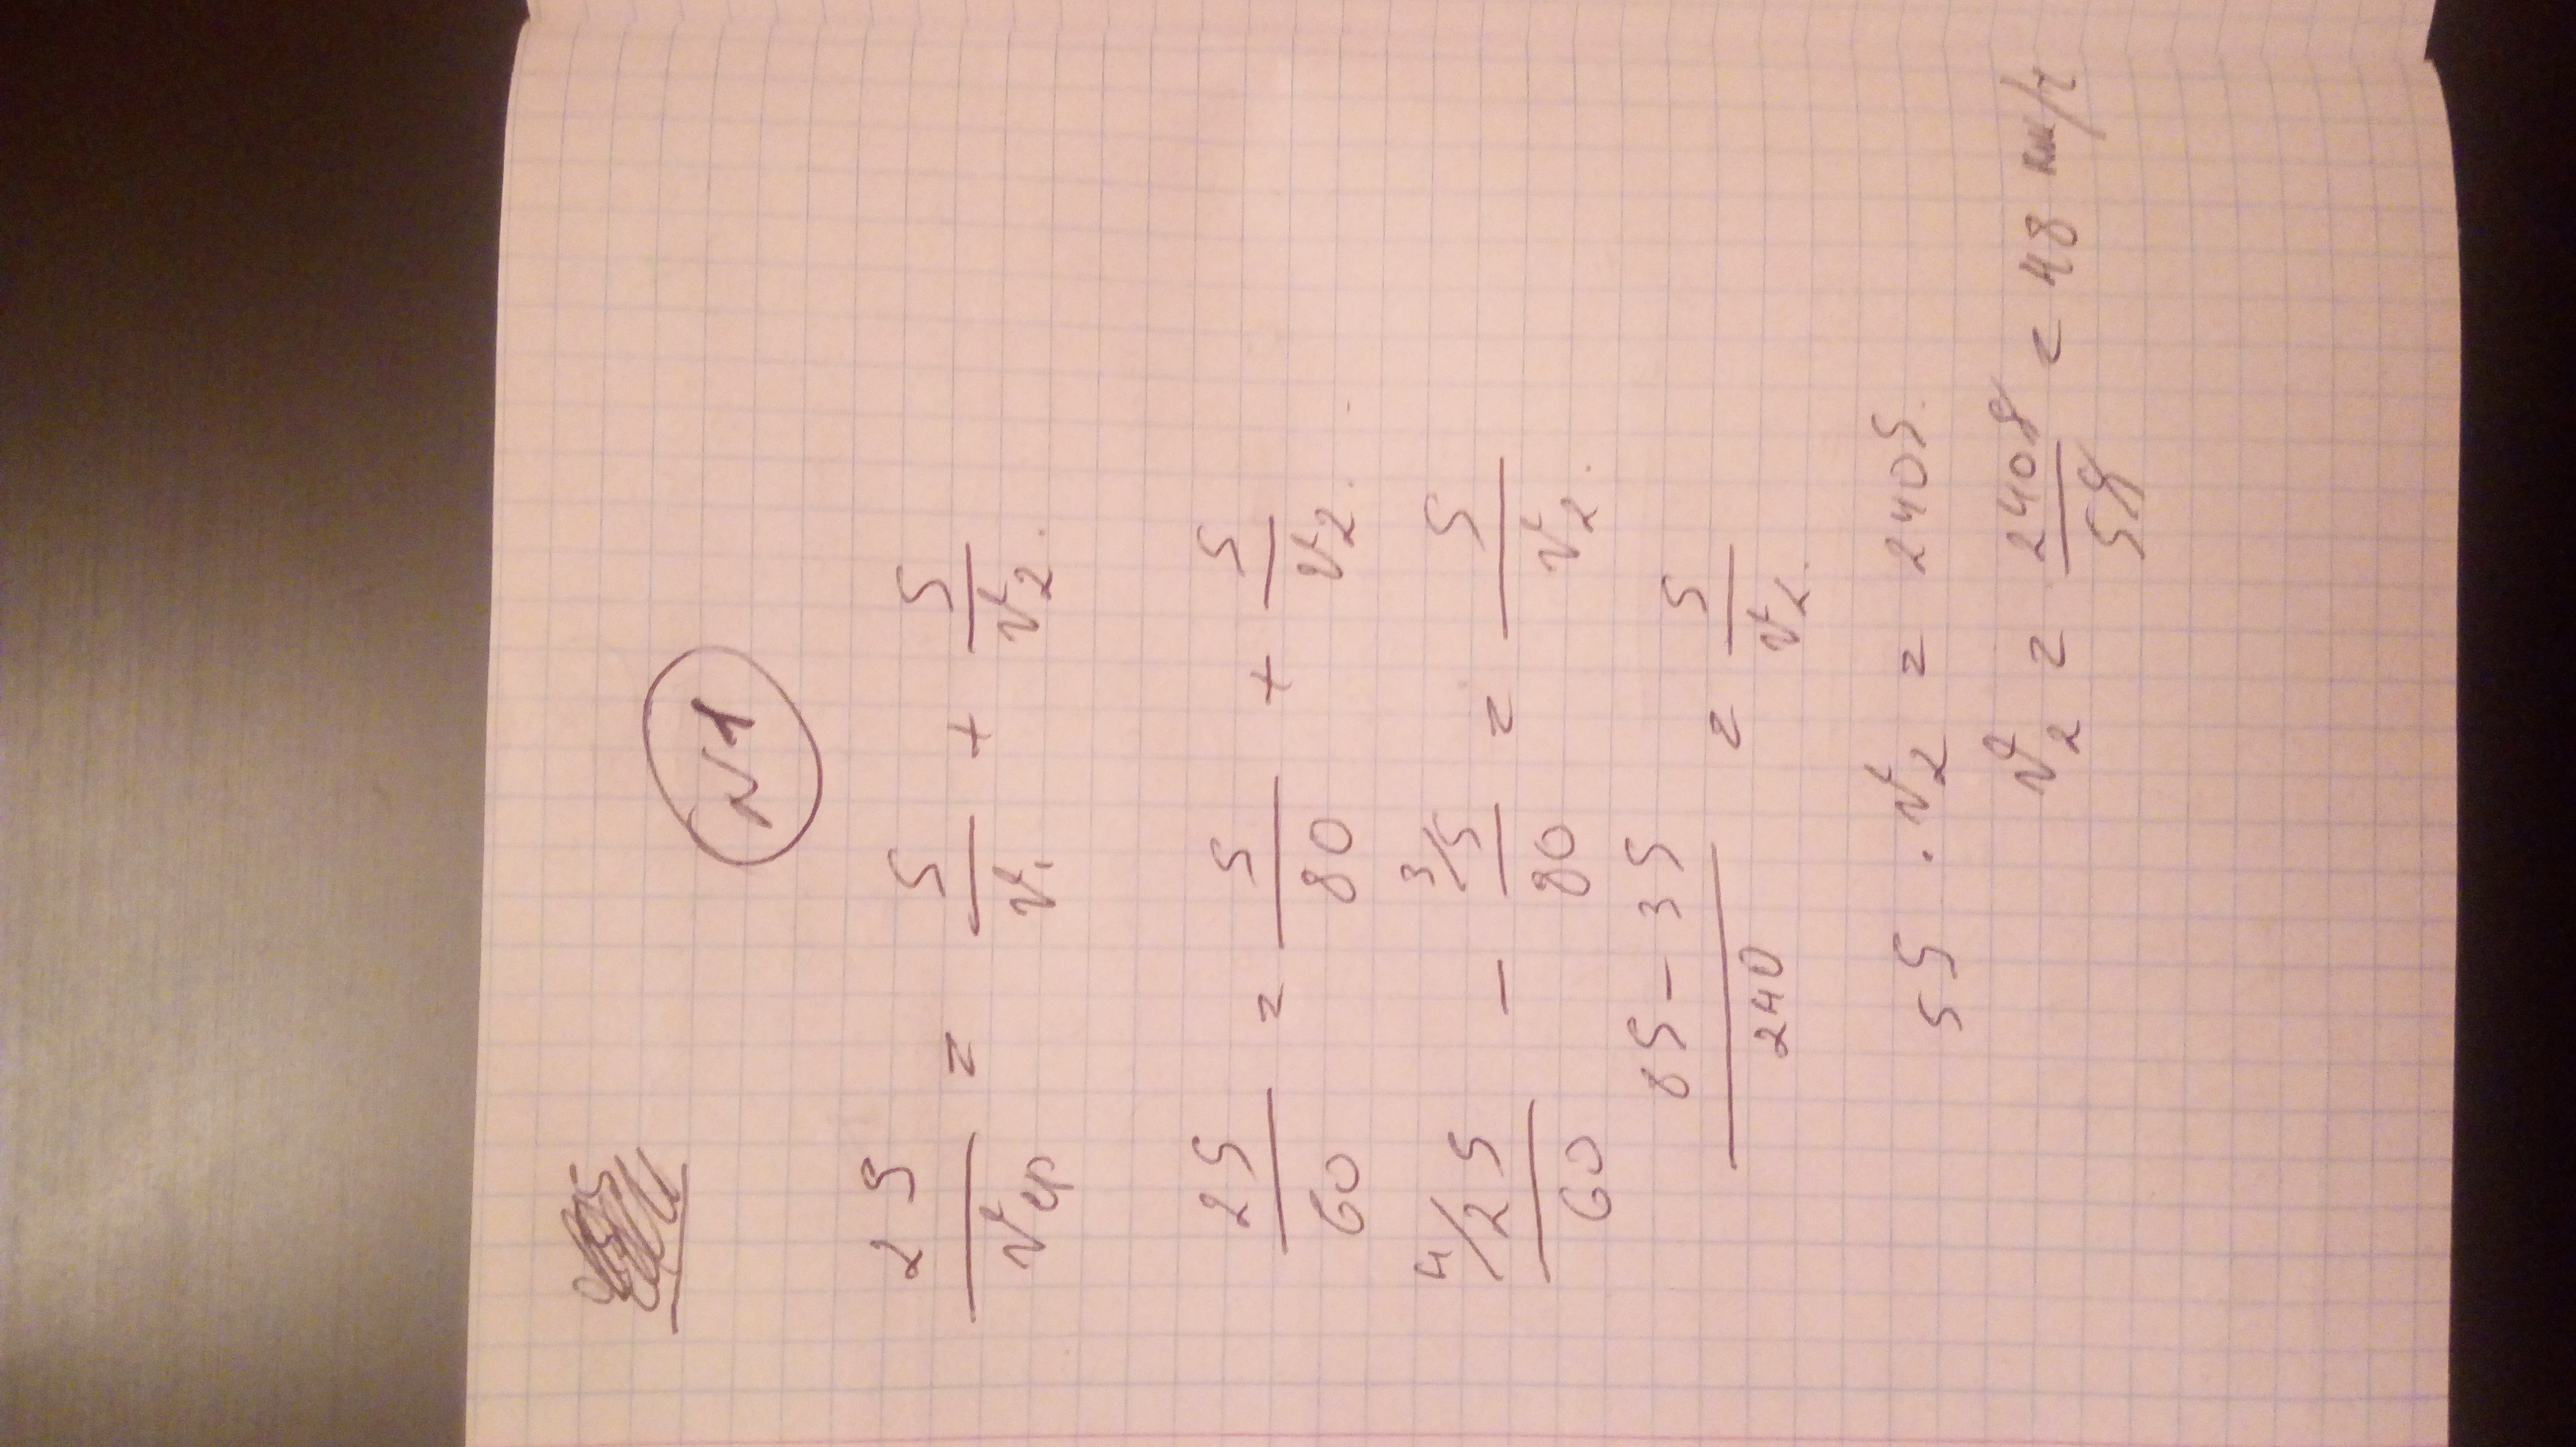 N1
2S/Vср = S/V₁ + S/V₂.
2S/60 = S/80 + S/V₂.
4/2S/60 - 3/S/80 = S/V₂.
8S - 3S/240 = S/V₂.
5S · V₂ = 240S.
V₂ = 240S/5S = 48 км/ч